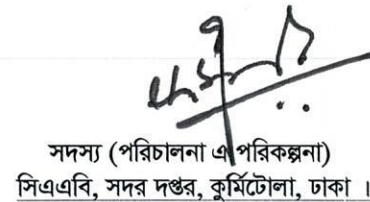 সদস্য (পরিচালনা এ পরিকল্পনা)
সিএএবি, সদর দপ্তর, কুর্মিটোলা, ঢাকা ।